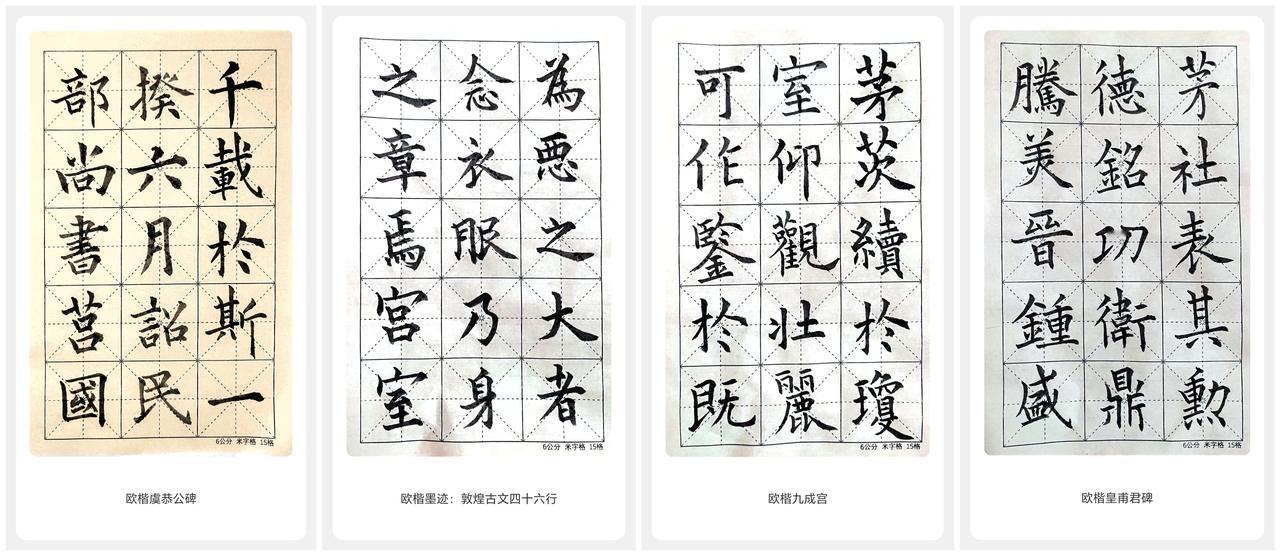 千載於斯一
揆六月詔民
部尚書莒國
6公分 米字格 15格
欧楷虞恭公碑
為悪之大者
念衣服乃身
之章焉宮室
6公分 米字格 15格
欧楷墨迹：敦煌古文四十六行
茅茨續於瓊
室仰觀壯麗
可作鑒於既
6公分 米字格 15格
欧楷九成宫
茅社表其勲
徳銘功衛鼎
騰美晉鍾盛
6公分 米字格 15格
欧楷皇甫君碑